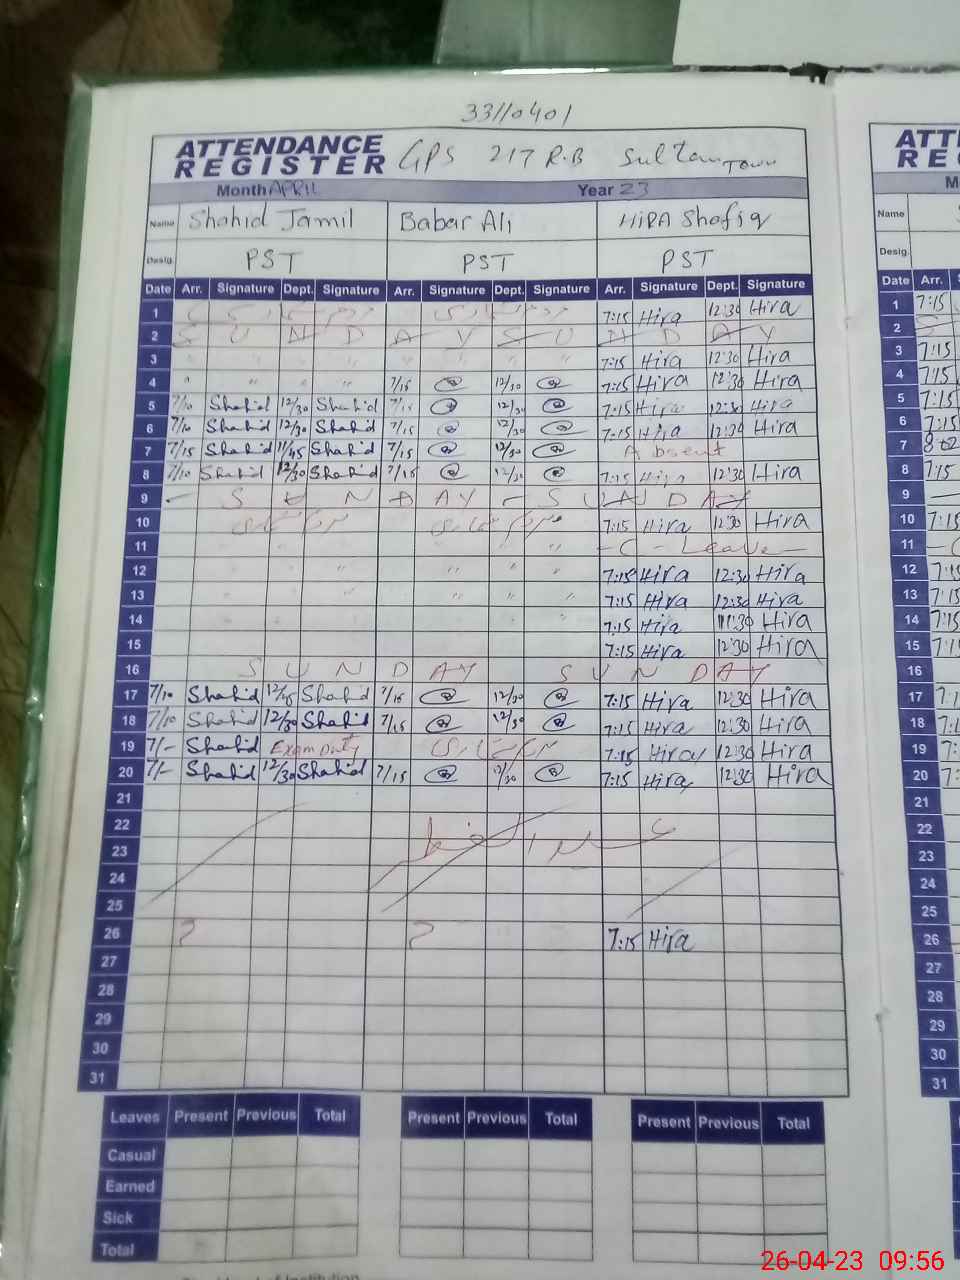 33110401
ATTENDANCE REGISTER GPS 217 R.B Sultan Town
Month APRIL Year 23
Name Shahid Jamil Babar Ali HiRA Shafiq
Desig. PST PST PST
Date Arr. Signature Dept. Signature Arr. Signature Dept. Signature Arr. Signature Dept. Signature
1 مردم شماری مردم شماری 7:15 Hira 12:30 Hira
2 S U N D A Y S U N D A Y
3 " " " " " " " 7:15 Hira 12:30 Hira
4 " " " " 7/15 12/30 7:15 Hira 12:30 Hira
5 7/10 Shahid 12/30 Shahid 7/15 12/30 7:15 Hira 12:30 Hira
6 7/10 Shahid 12/30 Shahid 7/15 12/30 7:15 Hira 12:30 Hira
7 7/15 Shahid 11/45 Shahid 7/15 12/30 Absent
8 7/10 Shahid 12/30 Shahid 7/15 12/30 7:15 Hira 12:30 Hira
9 - S U N D A Y - S U N D A Y
10 مردم شماری مردم شماری 7:15 Hira 12:30 Hira
11 " " " " - C - Leave -
12 " " " " 7:15 Hira 12:30 Hira
13 " " " " 7:15 Hira 12:30 Hira
14 " " " " 7:15 Hira 11:30 Hira
15 7:15 Hira 12:30 Hira
16 S U N D A Y S U N D A Y
17 7/10 Shahid Shahid 7/15 12/30 7:15 Hira 12:30 Hira
18 7/10 Shahid 12/30 Shahid 7/15 12/30 7:15 Hira 12:30 Hira
19 7/- Shahid Exam Duty مردم شماری 7:15 Hira 12:30 Hira
20 7/- Shahid 12/30 Shahid 7/15 12/30 7:15 Hira 12:30 Hira
21
22 عید الفطر
23
24
25
26 ? ? 7:15 Hira
27
28
29
30
31
Leaves Present Previous Total Present Previous Total Present Previous Total
Casual
Earned
Sick
Total
ATT
RE
M
Name
Desig.
Date Arr.
1 7:15
2
3 7:15
4 7:15
5 7:15
6 7:15
7
8 7:15
9
10 7:15
11 - C
12
13 7:15
14 7:15
15
16
17
18
19
20
21
22
23
24
25
26
27
28
29
30
31
26-04-23 09:56